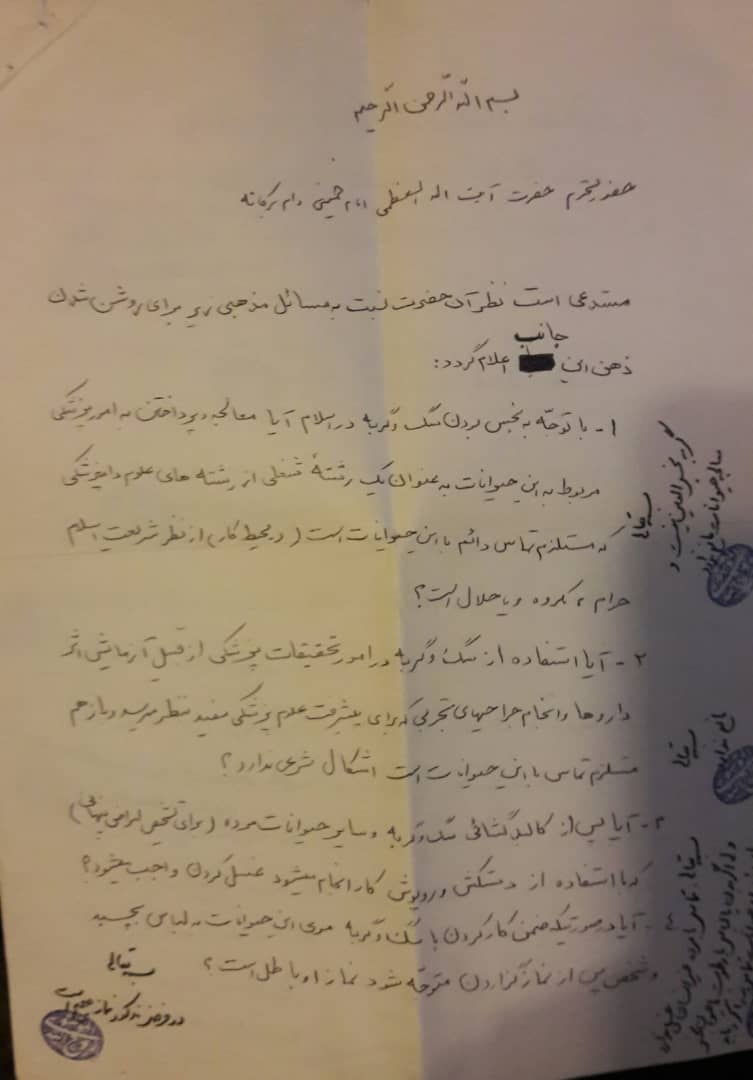 بسم الله الرحمن الرحیم
حضور محترم حضرت آیت اله العظمی امام خمینی دام برکاته
مستدعی است نظر آن حضرت نسبت به مسائل مذهبی زیر برای روشن شدن
جانب
ذهن این اعلام گردد:
۱- با توجّه به نجس بودن سگ و گربه در اسلام آیا معالجه و پرداختن به امور پزشکی
مربوط به این حیوانات به عنوان یک رشتهٔ شغلی از رشته های علوم دامپزشکی
که مستلزم تماس دائم با این حیوانات است (در محیط کار) از نظر شریعت اسلام
حرام، مکروه و یا حلال است؟
گربه نجس العین نیست و
معالجه حیوانات مانع ندارد
بسمه تعالی
۲- آیا استفاده از سگ و گربه در امور تحقیقات پزشکی از قبیل آزمایش اثر
داروها و انجام جراحیهای تجربی که برای پیشرفت علوم پزشکی مفید بنظر میرسد و باز هم
مستلزم تماس با این حیوانات است اشکال شرعی ندارد؟
بسمه تعالی
مانع ندارد
۳- آیا پس از کالبد گشائی سگ و گربه و سایر حیوانات مرده (برای تشخیص امراض نهائی)
که با استفاده از دستکش و روپوش کار انجام میشود غسل کردن واجب میشود؟
بسمه تعالی
۴- آیا در صورتیکه ضمن کار کردن با سگ و گربه موی این حیوانات به لباس بچسبد
و شخص پس از نماز گزاردن متوجّه شود نماز او باطل است؟
بسمه تعالی
در فرض مذکور نماز صحیح است